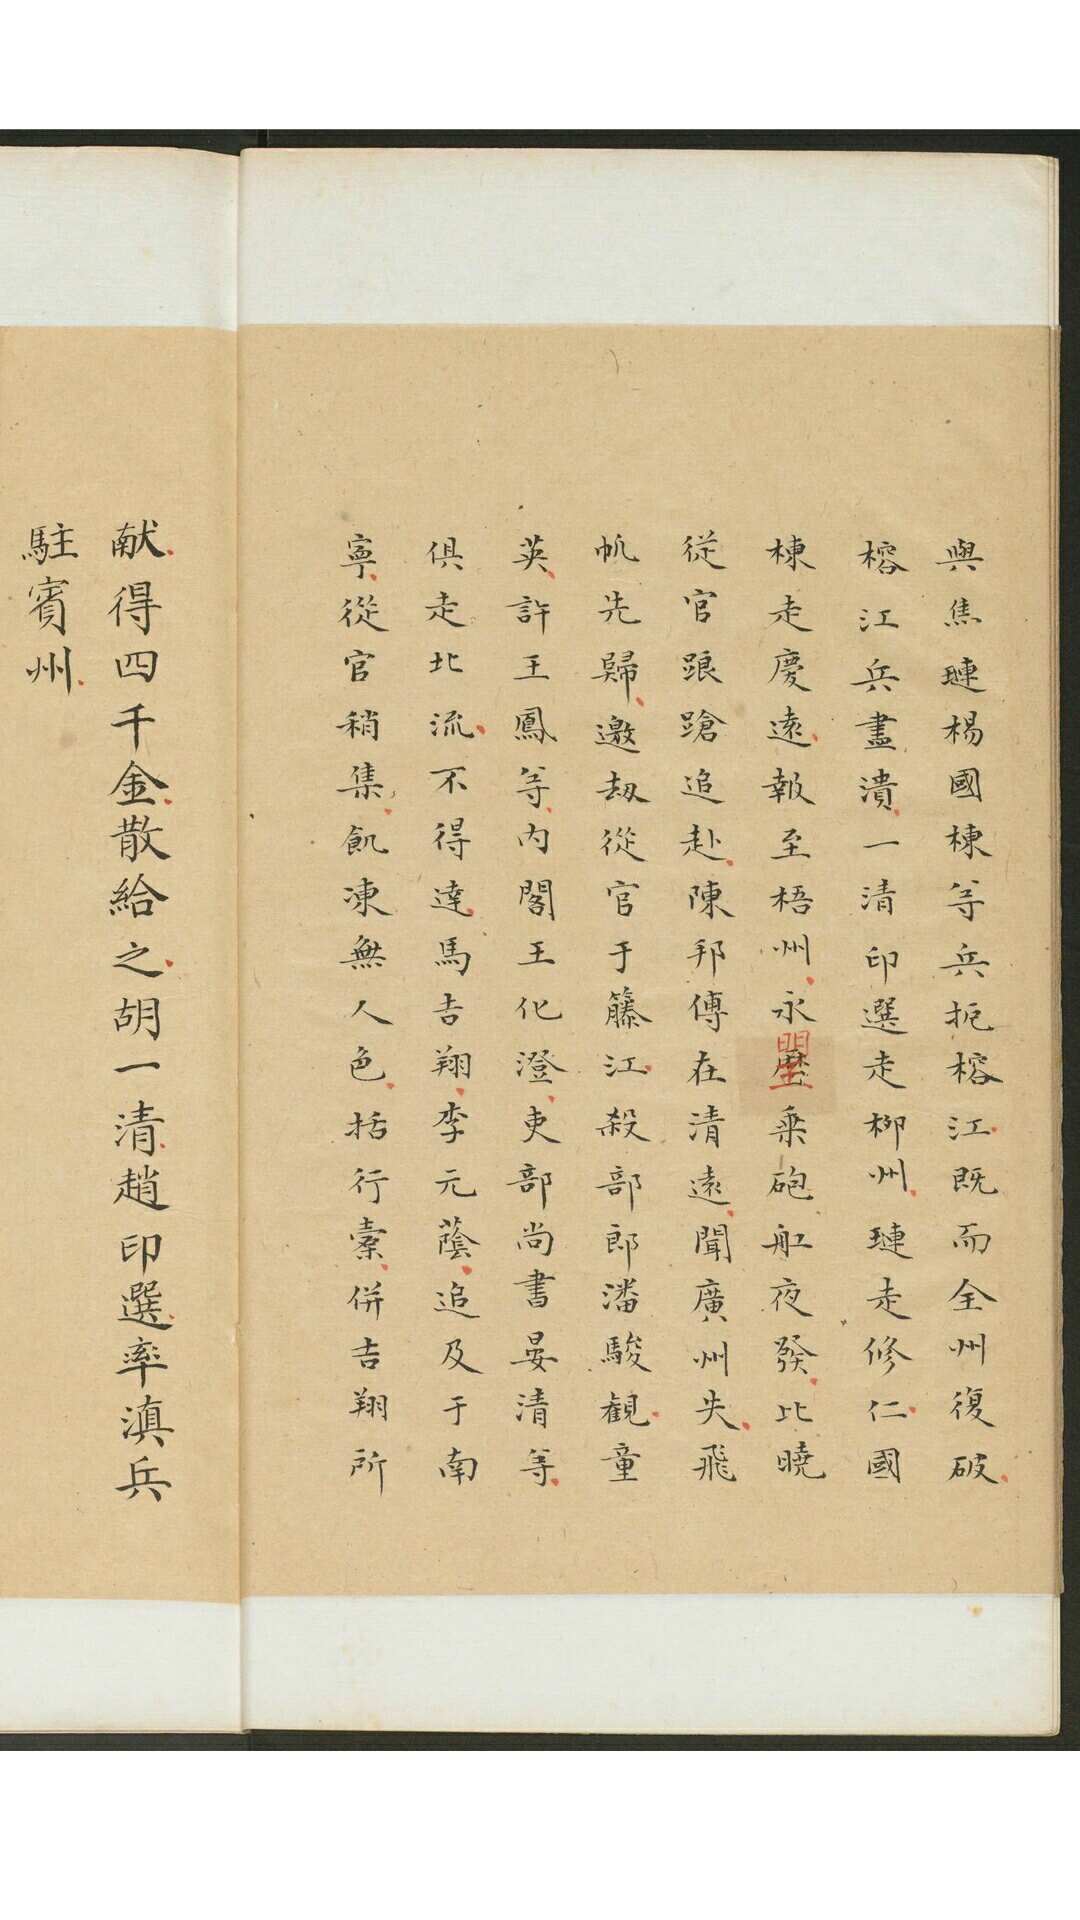 與焦璉楊國棟等兵扼榕江既而全州復破
榕江兵盡潰一清印選走柳州璉走修仁國
棟走慶遠報至梧州永曆乗砲舡夜發比曉
從官踉蹌追赴陳邦傳在清遠聞廣州失飛
帆先歸邀劫從官于籐江殺部郎潘駿觀童
英許王鳳等內閣王化澄吏部尚書晏清等
俱走北流不得達馬吉翔李元蔭追及于南
寧從官稍集飢凍無人色括行橐併吉翔所
献得四千金散給之胡一清趙印選率滇兵
駐賓州